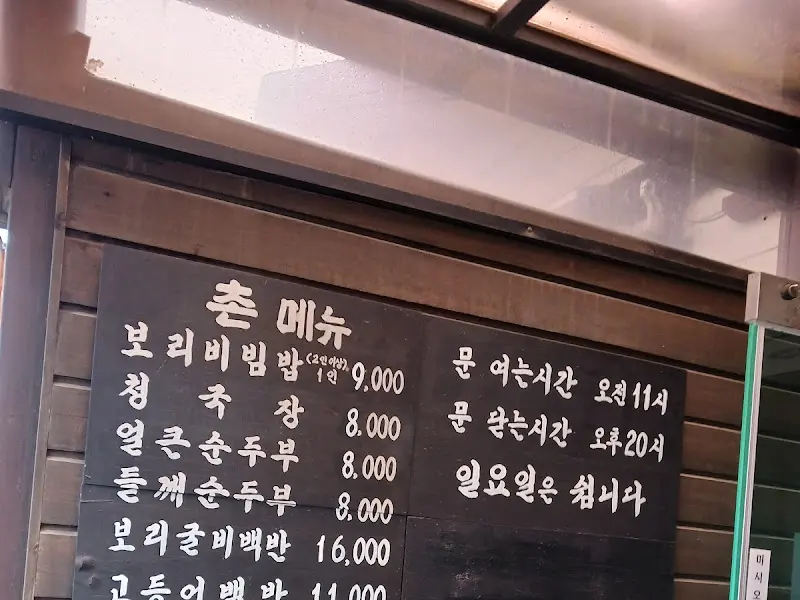 촌 메뉴
보리비빔밥 (2인이상) 1인 9,000
청국장 8,000
얼큰순두부 8,000
들깨순두부 8,000
보리굴비백반 16,000
고등어백반 11,000
문 여는시간 오전 11시
문 닫는시간 오후 20시
일요일은 쉽니다
미시오